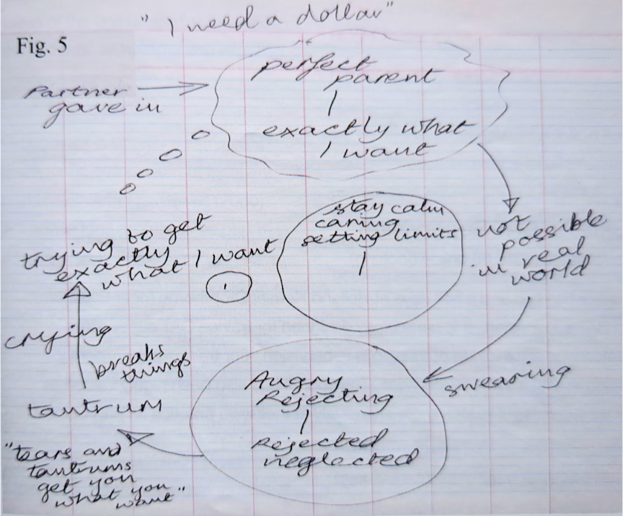 "I need a dollar"
Fig. 5
Partner
gave in
perfect
parent
exactly what
I want
not
possible
in real
world
stay calm
caring
setting limits
I
trying to get
exactly
what I want
crying
breaks
things
tantrum
"tears and
tantrums
get you
what you
want"
swearing
Angry
Rejecting
Rejected
neglected